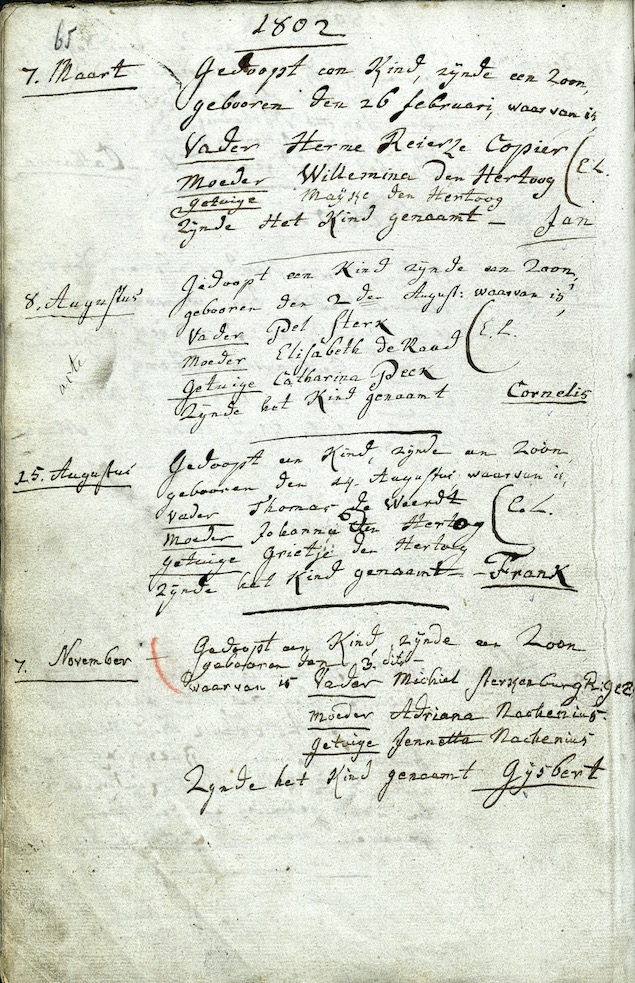 65
1802
7. Maart
Gedoopt een Kind, zijnde een Zoon,
gebooren den 26 februari, waarvan is
Vader Herme Reierze Copier
Moeder Willemina den Hertoog (E. L.
getuige Maijke den Hertoog
zijnde Het Kind genaamt - Jan
8. Augustus
Gedoopt een Kind zijnde een Zoon,
gebooren den 2 den August: waarvan is,
Vader Pel Sterk
Moeder Elisabeth de Raad (E. L.
Getuige Catharina Peek
Zijnde het Kind genaamt Cornelis
acte
15. Augustus
Gedoopt een Kind, zijnde een Zoon
gebooren den 14. Augustus waarvan is,
Vader Thomas de Weerdt
Moeder Johanna den Hertog (E. L.
getuige Grietje den Hertog
zijnde het Kind genaamt - Frank
7. November
Gedoopt een Kind, zijnde een Zoon
gebooren den 3. dito
waarvan is Vader Michiel Sterkenburg R: gez:
Moeder Adriana Nachenius.
Getuige Jennetta Nachenius
Zijnde het Kind genaamt Gijsbert